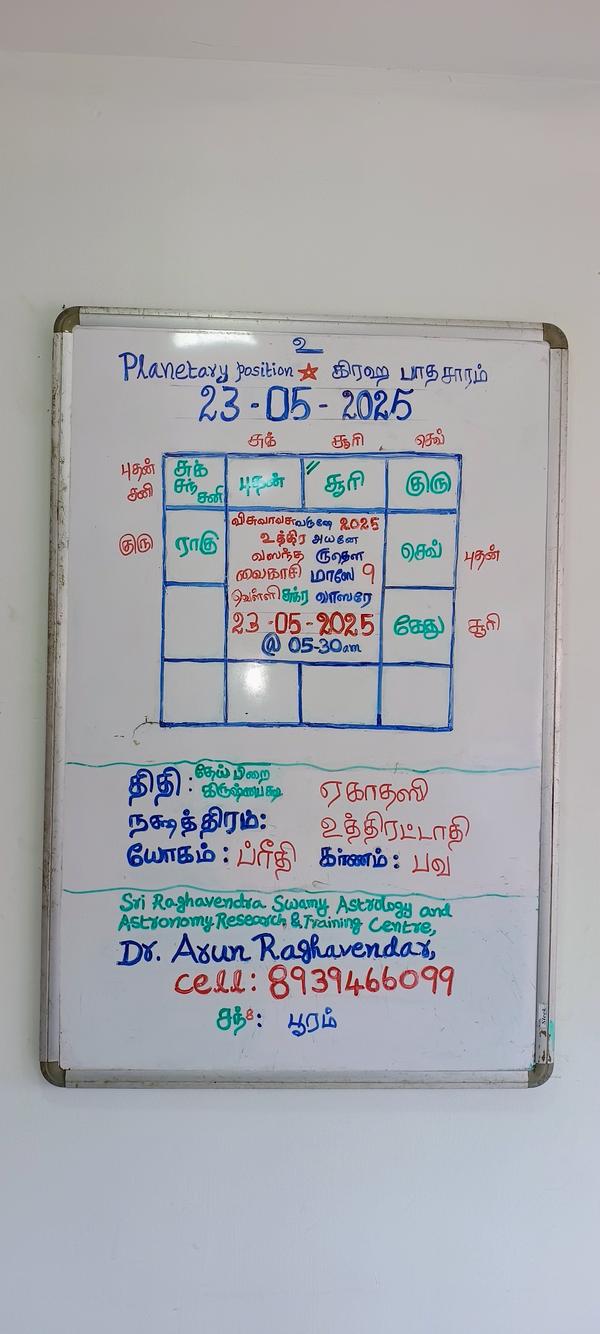 உ
Planetary position ☆ கிரஹ பாதசாரம்
23-05-2025
சுக் சூரி செவ்
புதன் சனி
சுக் சந் சனி
புதன்
சூரி
குரு
குரு
ராகு
செவ்
புதன்
கேது
சூரி
விசுவாவசுவருஷே 2025
உத்திர அயனே
வஸந்த ருதௌ
வைகாசி மாஸே 9
வெள்ளி சுக்ர வாஸரே
23-05-2025
@ 05-30am
திதி: தேய் பிறை கிருஷ்ணபக்ஷ ஏகாதஸி
நக்ஷத்திரம்: உத்திரட்டாதி
யோகம்: ப்ரீதி கர்ணம்: பவ
Sri Raghavendra Swamy Astrology and
Astronomy Research & Training Centre,
Dr. Arun Raghavendar,
Cell: 8939466099
சந்8: பூரம்